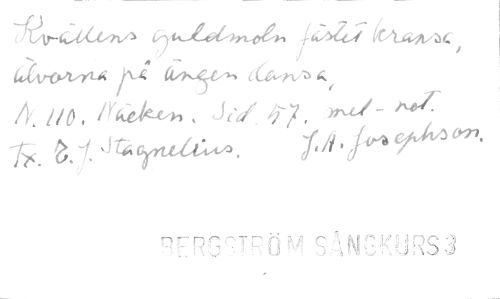 Kvällens guldmoln fästet kransa,
älvorna på ängen dansa,
N. 110. Näcken. Sid. 57. mel-not.
Tx. E. J. Stagnelius. J. A. Josephson.
BERGSTRÖM SÅNGKURS 3